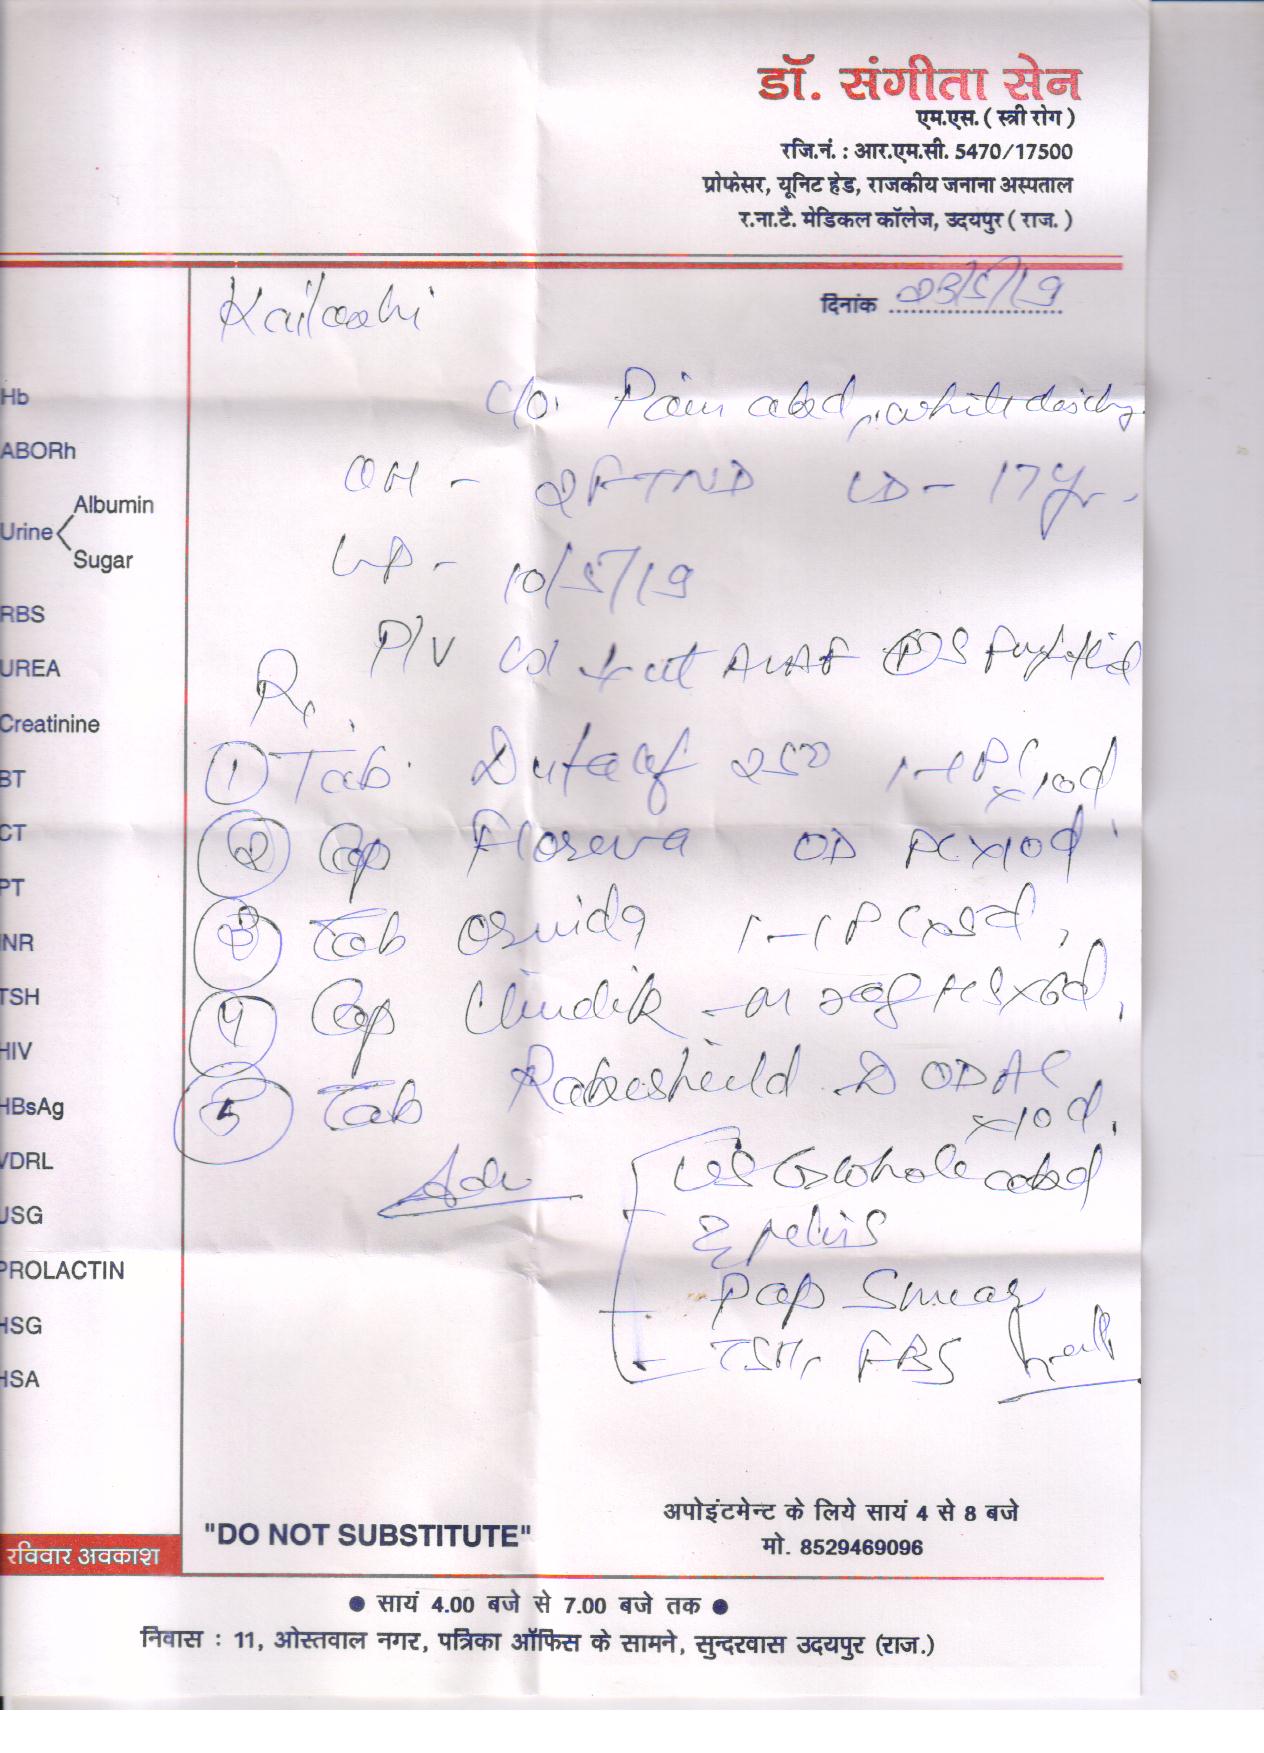 डॉ. संगीता सेन
एम.एस. ( स्त्री रोग )
रजि.नं. : आर.एम.सी. 5470/17500
प्रोफेसर, यूनिट हेड, राजकीय जनाना अस्पताल
र.ना.टै. मेडिकल कॉलेज, उदयपुर ( राज. )
दिनांक 23/5/19
C/o. Pain abd, white
Hb
OH - 2FTND LD - 17yr.
ABORh
Albumin
Urine
Sugar
LP - 10/5/19
RBS
P/V
UREA
Rx
Creatinine
① Tab. 250 1-1 PC x10d
BT
② Cap Floreva OD PC x10d
CT
PT
③ Tab 1-1 PC x5d,
INR
④ Cap
TSH
HIV
⑤ Tab Rabeshield D OD AC
x10d.
HBsAg
Adv USG whole abd
VDRL
& pelvis
USG
Pap Smear
PROLACTIN
TSH, FBS
HSG
HSA
"DO NOT SUBSTITUTE"
अपोइंटमेन्ट के लिये सायं 4 से 8 बजे
मो. 8529469096
रविवार अवकाश
● सायं 4.00 बजे से 7.00 बजे तक ●
निवास : 11, ओस्तवाल नगर, पत्रिका ऑफिस के सामने, सुन्दरवास उदयपुर (राज.)